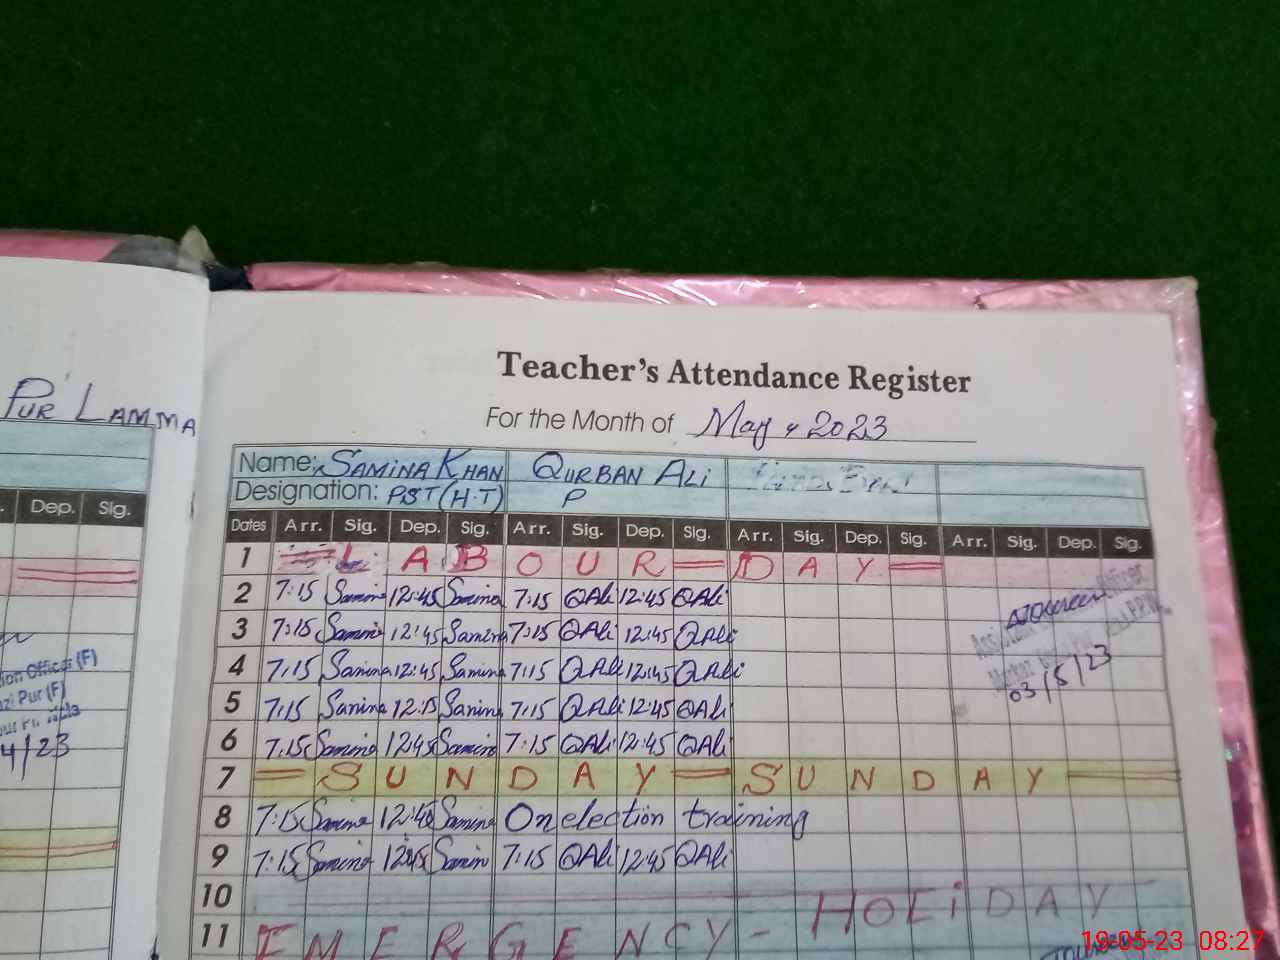 PUR LAMMA
Dep. Sig.
(F)
Pur (F)
4/23
Teacher's Attendance Register
For the Month of May, 2023
Name: SAMINA KHAN QURBAN ALI
Designation: PST (H.T) P
Dates Arr. Sig. Dep. Sig. Arr. Sig. Dep. Sig. Arr. Sig. Dep. Sig. Arr. Sig. Dep. Sig.
1 LABOUR DAY
2 7:15 Samina 12:45 Samina 7:15 QAli 12:45 QAli
3 7:15 Samina 12:45 Samina 7:15 QAli 12:45 QAli
4 7:15 Samina 12:45 Samina 7:15 QAli 12:45 QAli
5 7:15 Samina 12:15 Samina 7:15 QAli 12:45 QAli
6 7:15 Samina 12:45 Samina 7:15 QAli 12:45 QAli
7 SUNDAY SUNDAY
8 7:15 Samina 12:45 Samina On election training
9 7:15 Samina 12:45 Samin 7:15 QAli 12:45 QAli
10 HOLiDAY
11 EMERGENCY -
03/5/23
19-05-23 08:27